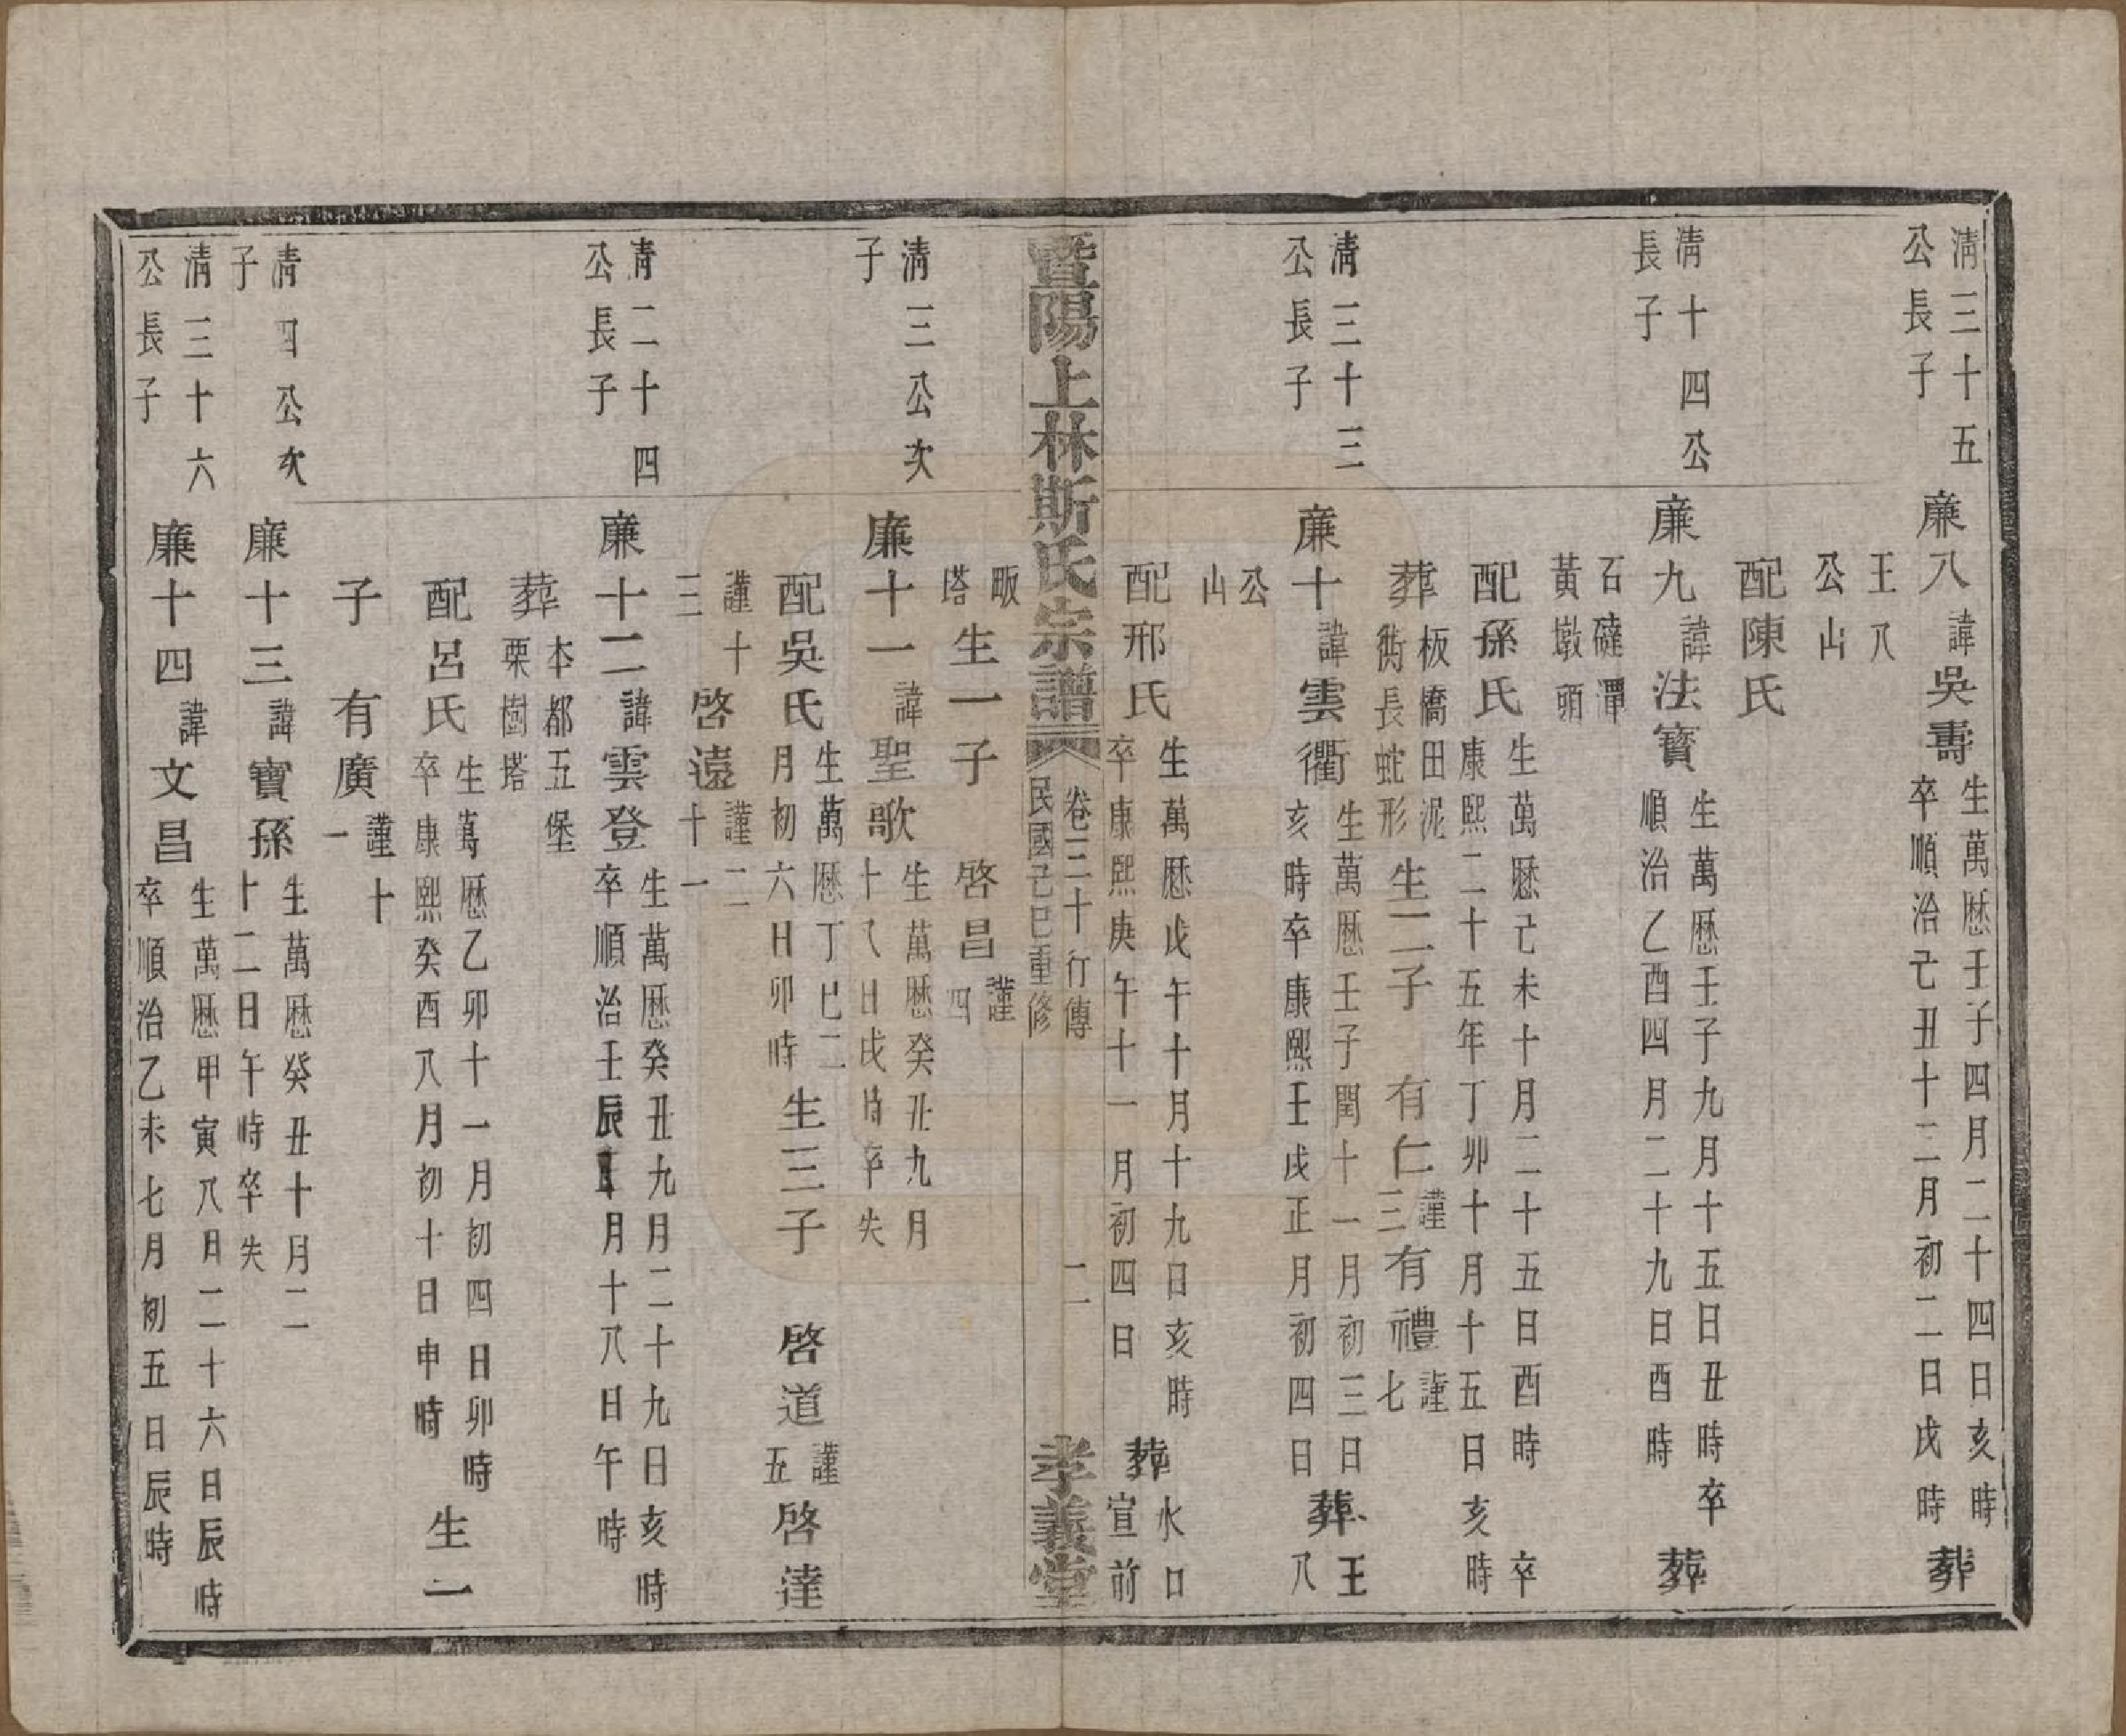 清三十五
公長子
廉八諱吳壽
生萬厯壬子四月二十四日亥時
卒順治己丑十二月初二日戌時
葬
王八
公山
配陳氏
清十四公
長子
廉九諱法寶
生萬厯壬子九月十五日丑時卒
順治乙酉四月二十九日酉時
葬
石礳潭
黃墩頭
配孫氏
生萬厯己未十月二十五日酉時 卒
康熙二十五年丁卯十月十五日亥時
葬
板橋田泥
衖長蛇形
生二子 有仁謹三 有禮謹七
清三十三
公長子
廉十諱雲衢
生萬厯壬子閏十一月初三日
亥時卒康熙壬戌正月初四日
葬
王
八
公
山
配邢氏
生萬厯戊午十月十九日亥時
卒康熙庚午十一月初四日
葬
水口
宣前
暨陽上林斯氏宗譜
卷三十行傳
民國己巳重修
二
孝義堂
畈
塔
生一子 啓昌謹四
清三公次
子
廉十一諱聖歌
生萬厯癸丑九月
十八日戌時卒失
配吳氏
生萬厯丁巳二
月初六日卯時
生三子 啓道謹五 啓達
謹十
三
啓遠
謹二
十一
清二十四
公長子
廉十二諱雲登
生萬厯癸丑九月二十九日亥時
卒順治壬辰正月十八日午時
葬
本都五堡
栗樹塔
配呂氏
生萬厯乙卯十一月初四日卯時
卒康熙癸酉八月初十日申時
生一
子 有廣
謹十
一
清四公次
子
廉十三諱寶孫
生萬厯癸丑十月二
十二日午時卒失
清三十六
公長子
廉十四諱文昌
生萬厯甲寅八月二十六日辰時
卒順治乙未七月初五日辰時